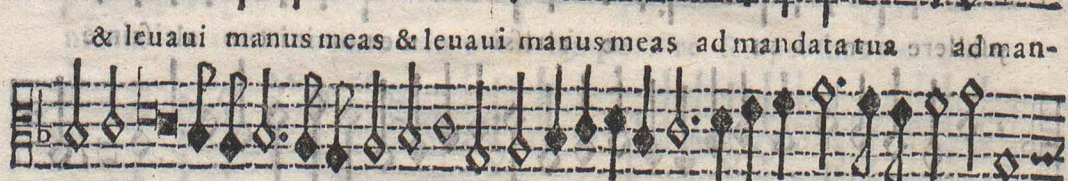 & leuaui manus meas & leuaui manus meas ad mandata tua ad man-